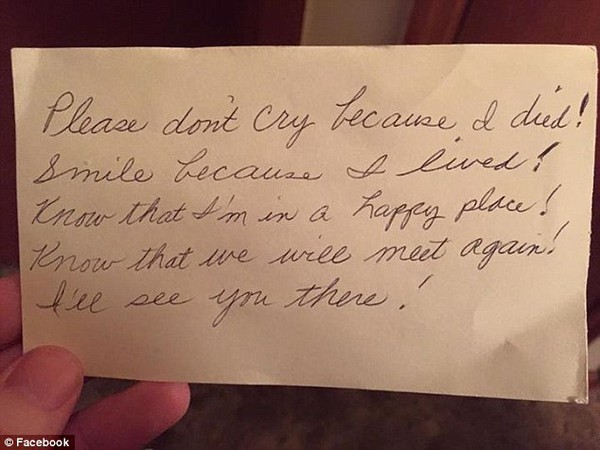 Please don't cry because I died!
Smile because I lived!
Know that I'm in a happy place!
Know that we will meet again!
I'll see you there!
© Facebook